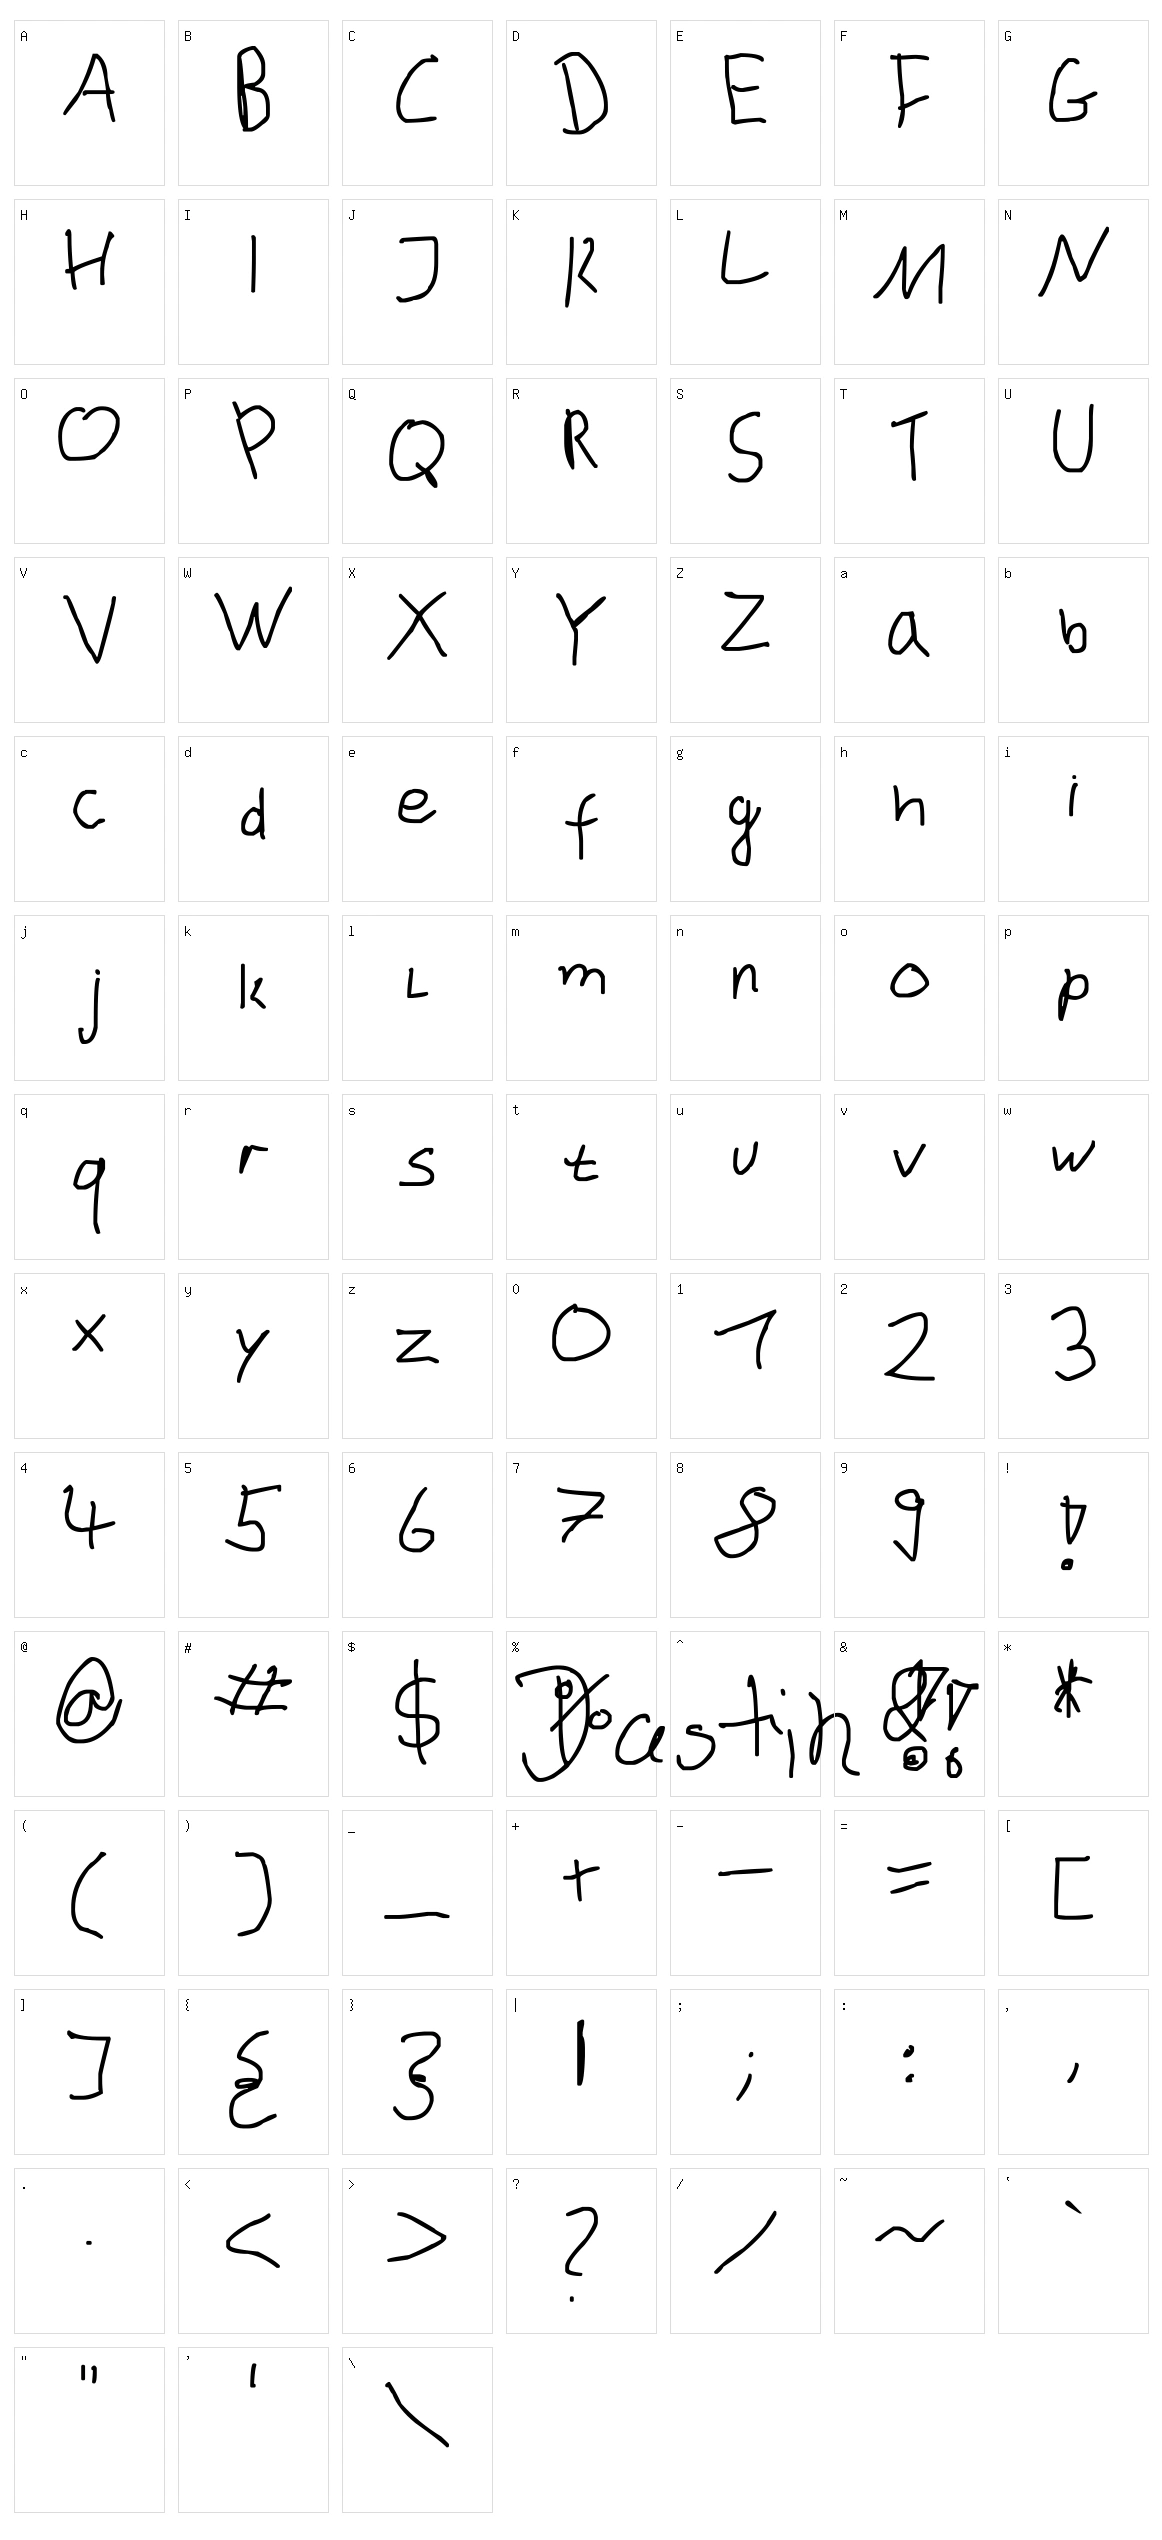 A B C D E F G
A B C D E F G
H I J K L M N
H I J K L M N
O P Q R S T U
O P Q R S T U
V W X Y Z a b
V W X Y Z a b
c d e f g h i
c d e f g h i
j k l m n o p
j k L m n o p
q r s t u v w
q r s t u v w
x y z 0 1 2 3
x y z 0 1 2 3
4 5 6 7 8 9 !
4 5 6 7 8 9 !
@ # $ % ^ & *
@ # $ % Dastin & !! *
( ) _ + - = [
( ) _ + - = [
] { } | ; : ,
] { } | ; : ,
. < > ? / ~ `
. < > ? / ~ `
" ' \
" ' \